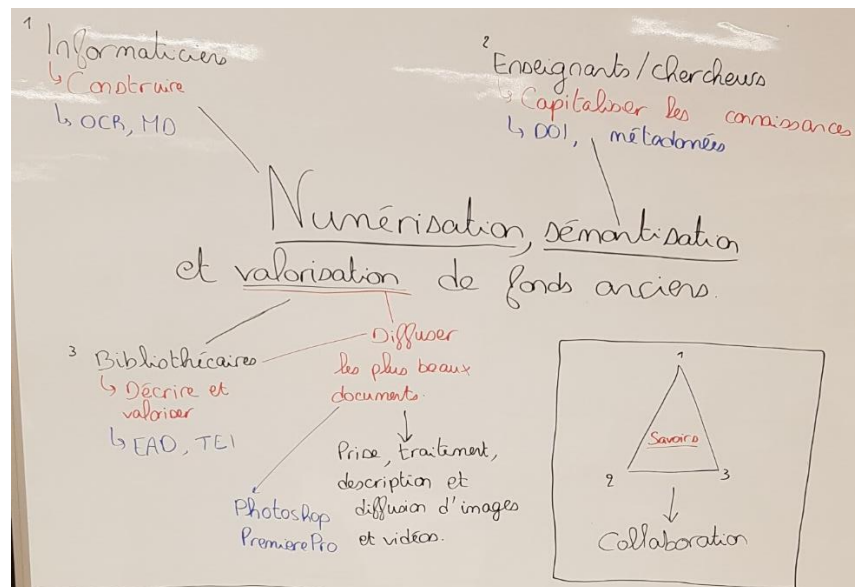 1
Informaticiens
↳ Construire
↳ OCR, MD
2
Enseignants/chercheurs
↳ Capitaliser les connaissances
↳ DOI, métadonnées
Numérisation, sémantisation
et valorisation de fonds anciens.
3
Bibliothécaires
↳ Décrire et
valoriser
↳ EAD, TEI
Diffuser
les plus beaux
documents.
Photoshop
PremierePro
Prise, traitement,
description et
diffusion d'images
et vidéos.
1
Savoirs
2 3
Collaboration